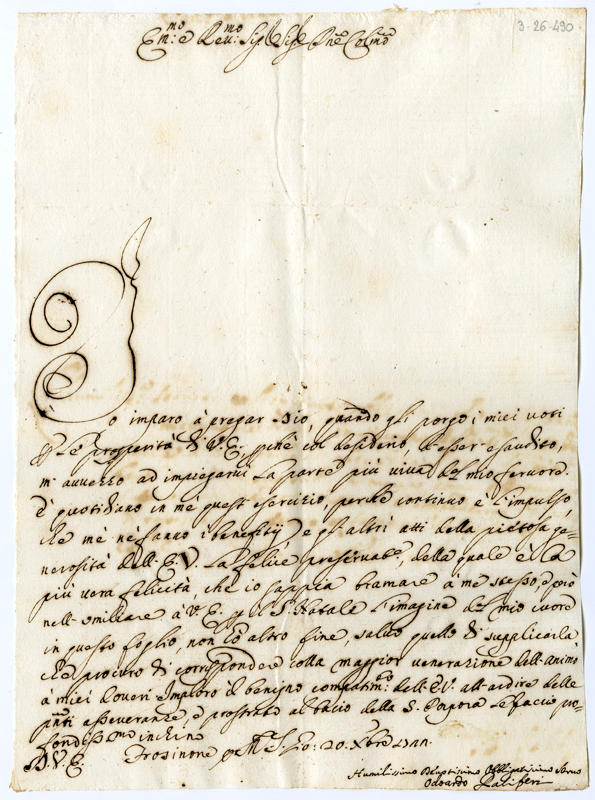 3-26-490
Em.mo e Rev.mo Sig.r Sig.r Pne Colmo
Io imparo à pregar Dio, quando gli porgo i miei voti
p le prosperità di V. E., pchè col desiderio, d'esser esaudito,
m' avvezzo ad impiegarvi la parte più viva del mio fervore.
È quotidiano in mè quest' esercizio, perchè continuo è l'impulso,
che mè ne fanno i benefitij, e gl'altri atti della pietosa ge-
nerosità dell' E. V. La felice preservat.e, della quale è la
più vera felicità, che io sappia bramare à me stesso, e però
nell' umiliare à V. E. p il S. Natale l'imagine del mio cuore
in questo foglio, non hò altro fine, salvo quello di supplicarla
che procuro di corrispondere colla maggior venerazione dell' animo
à miei doveri e imploro il benigno compatim.to dell' E. V. all' ardire delle
pnti asseveranze, e prostrato al bacio della S. Porpora le faccio pro-
fondiss.mo inchino
D. V. E.
Frosinone 20. Xbre
Humilissimo Devotissimo Obbligatissimo Servo
Odoardo